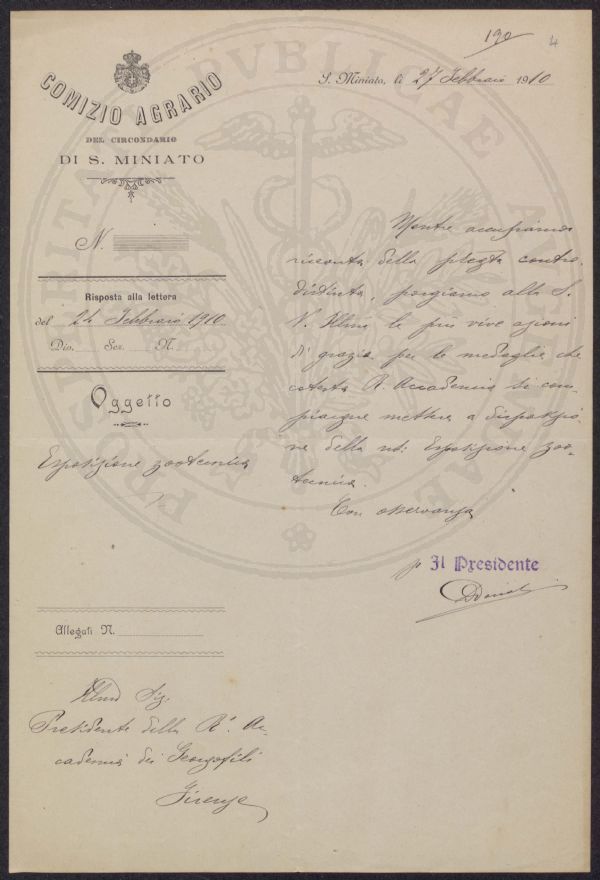 190
4
COMIZIO AGRARIO
DEL CIRCONDARIO
DI S. MINIATO
S. Miniato, li 27 Febbraio 1910
N.
Risposta alla lettera
del 24 Febbraio 1910
Div. Sez. N.
Oggetto
Esposizione zootecnica
Mentre accusiamo
ricevuta della pregta contro-
distinta, porgiamo alla S.
V. Illma le più vive azioni
di grazia per le medaglie che
cotesta R. Accademia si com-
piacque mettere a disposizio-
ne della Esposizione zoo-
tecnica.
Con osservanza
p Il Presidente
Allegati N.
Illmo Sig.
Presidente della Rª. Ac-
cademia dei Georgofili
Firenze
PROSPERITATI PVBLICAE AVGENDAE